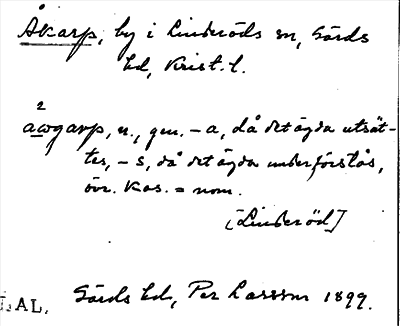 Åkarp, by i Linderöds sn, Gärds
hd, Krist. l.
2
awgarp, n., gen. -a, då det ägda utsät-
tes, -s, då det ägda underförstås,
övr. kas. = nom.
[Linderöd]
AL. Gärds hd, Per Larsson 1899.